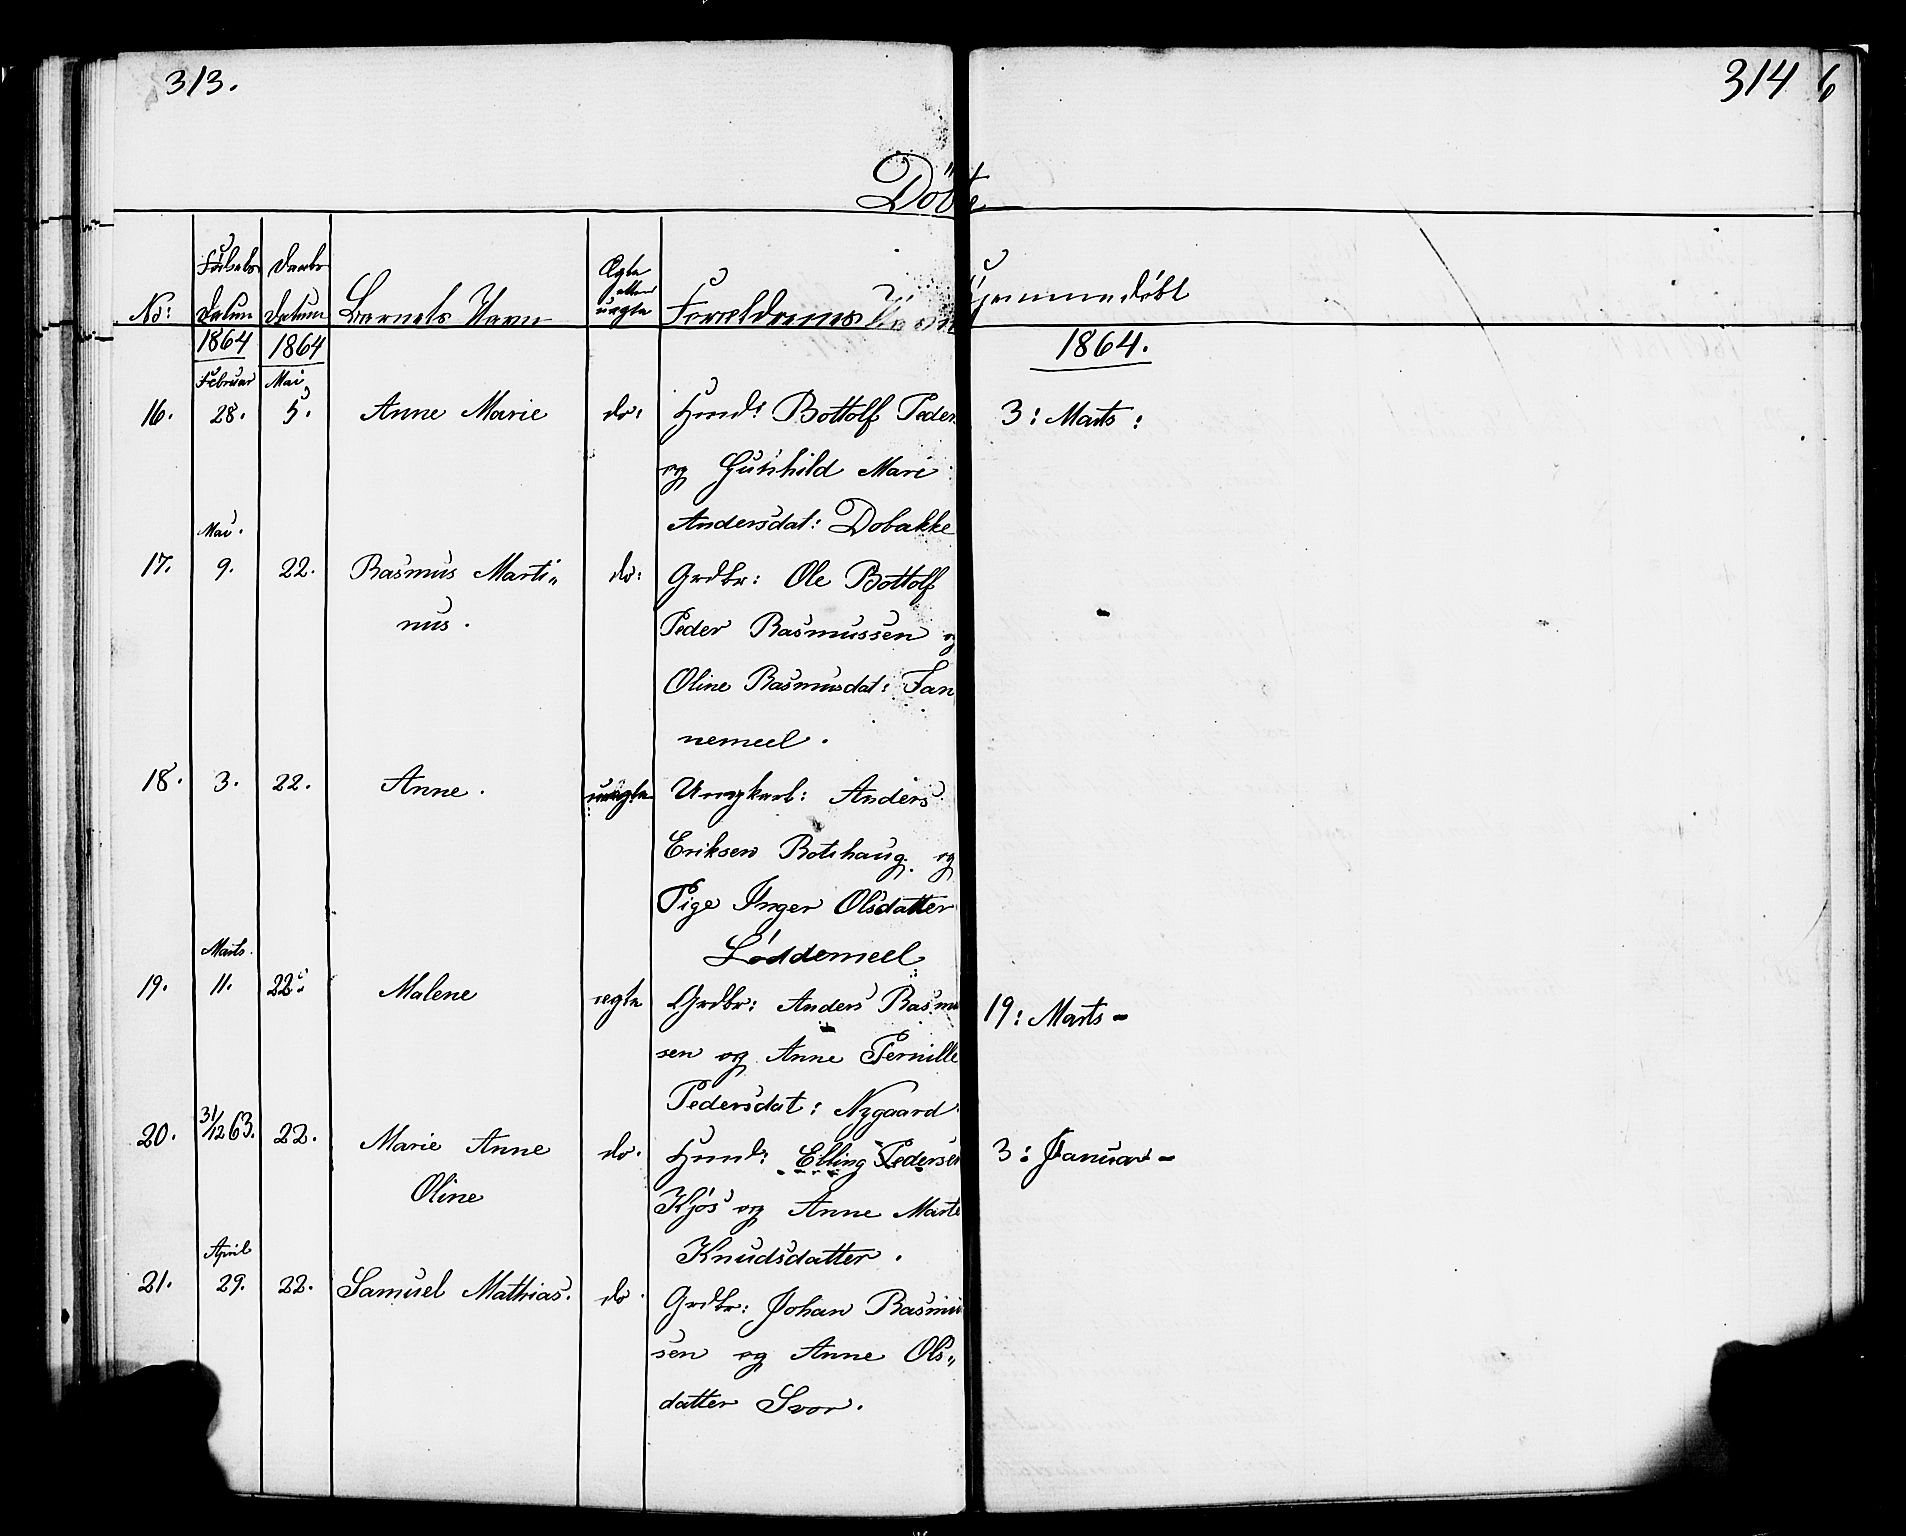 313.
314 6
Döbte
No: Födsels Datum Daabs Datum Barnets Navn Ægte eller uægte Forældrenes Navn Hjemmedöbt
1864 1864 1864.
Februar Mai
16. 28. 5. Anne Marie do: Hmd: Bottolf Peders 3: Marts:
og Gutshild Mari
Andersdat: Dobakke
Mai.
17. 9. 22. Rasmus Marti„ do: Grdbr: Ole Bottolf
nus. Peder Rasmussen og
Oline Rasmusdat: Fan
nemeel.
18. 3. 22. Anne. uægte Ungkarl: Anders
Eriksen Botshaug. og
Pige Inger Olsdatter
Løddemeel
Marts.
19. 11. 22: Malene ægte Grdbr: Anders Rasmu 19: Marts-
sen og Anne Pernille
Pedersdat: Nygaard
20. 31/12 63. 22. Marie Anne do. Hmd: Elling Pedersen 3: Januar-
Oline Kjös og Anne Marte
Knudsdatter.
April
21. 29. 22. Samuel Mathias. do. Grdbr: Johan Rasmu
sen og Anne Ols„
datter Svor.